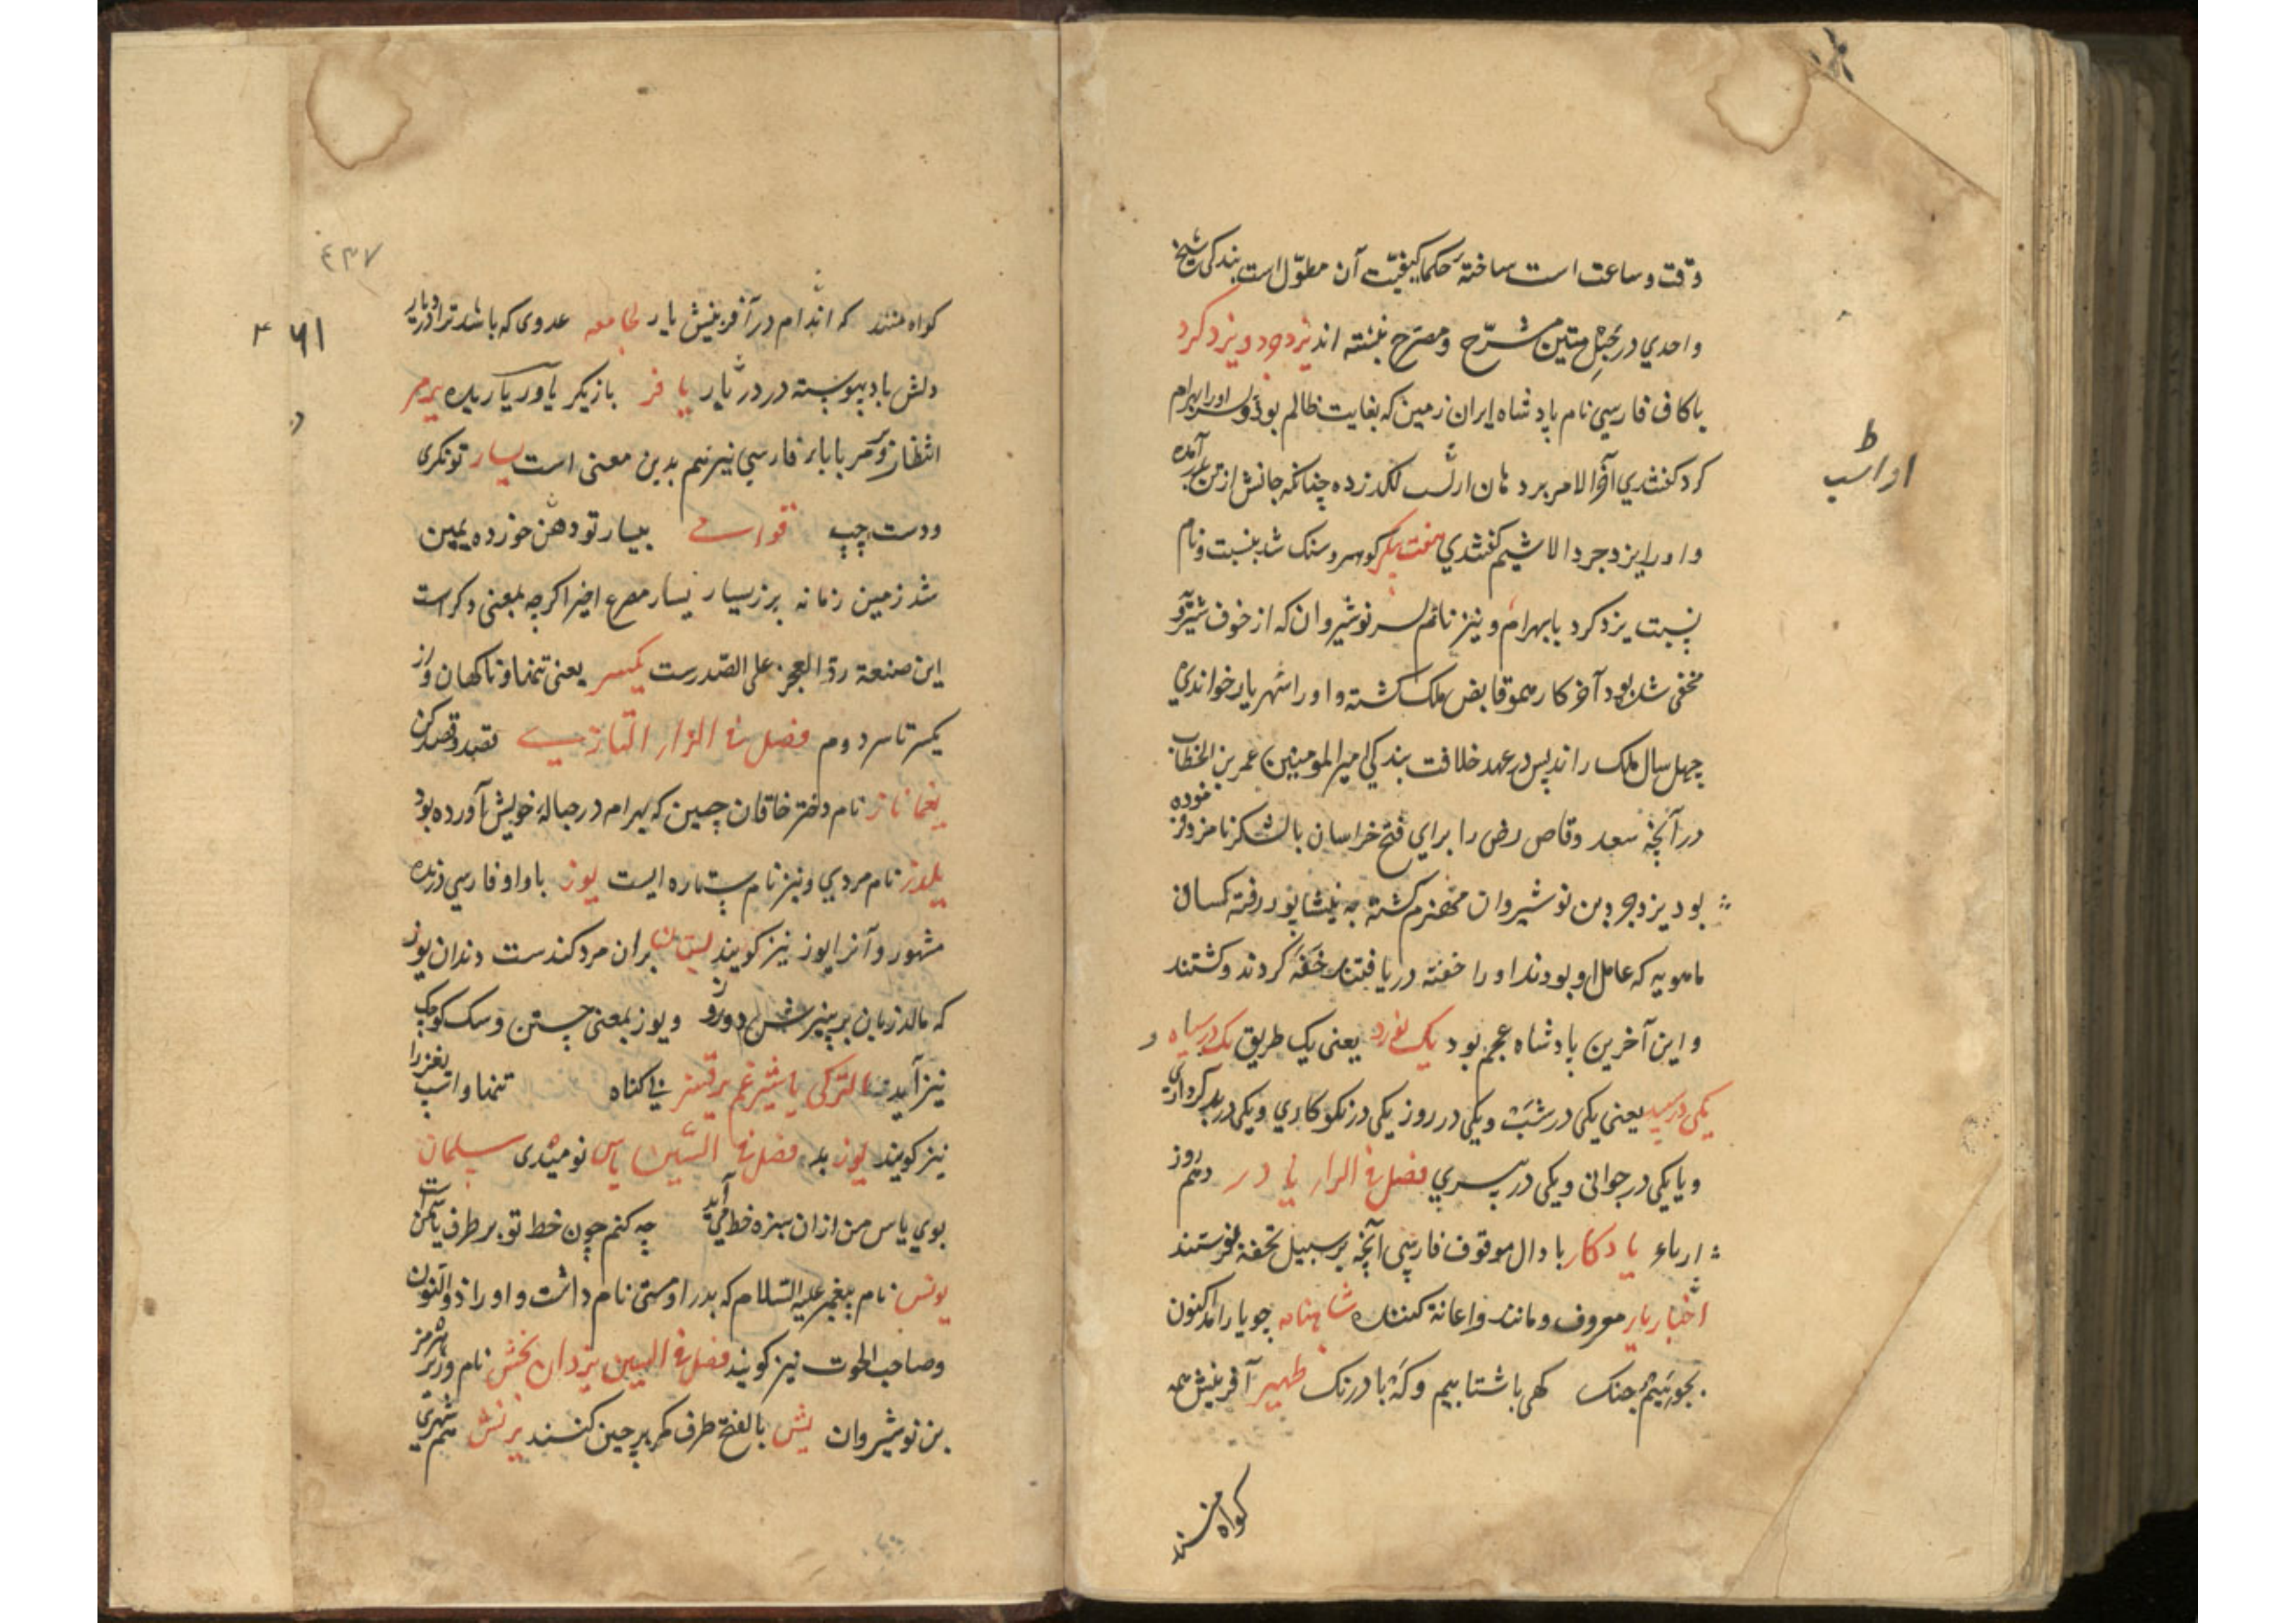 وقت و ساعت است ساختهٔ حکما کیفیت آن مطوّل است بندکی شیخ
واحدي در حبل متین مشرّح و مصرّح نبشته اند یزدجرد و یزدکرد
باکاف فارسي نام پادشاه ایران زمین که بغایت ظالم بود و او را بهرام
کرد کفتندي آخر الامر برد لکد زده چنانکه جانش از تن برآمده
و او را یزدجرد الاثیم کفتندي هفت پیکر کوهر و سنک شد بنسبت و نام
نسبت یزدکرد با بهرام و نیز نام پسر نوشیروان که از خوف شیرویه
مخفی شده بود آخر کار همو قابض ملک کشته و او را شهریار خواندي
چهل سال ملک راند پس در عهد خلافت بندکي امیر المومنین عمر بن الخطاب
در آنچه سعد وقاص رض را براي فتح خراسان با لشکر نامزد فرموده
بود یزدجرد بن نوشیروان منهزم کشته به نیشاپور رفته کسان
ماهویه که عامل او بودند او را خفته دریافتند خفه کردند و کشتند
و این آخرین بادشاه عجم بود یک نورد یعنی یک طریق یک در سیاه و
یکی در سپید یعنی یکی در شب و یکی در روز یکی در نکوکاري و یکی در بدکرداري
و یا یکی در جوانی و یکی در پیري فصل في الراء یا در دهم روز
یادکار با دال موقوف فارسي آنچه بر سبیل تحفه فرستند
اختیار یار معروف و مانند و اعانة کننده شاهنامه چو یار آمد کنون
بجوییم جنک کهی با شتابیم و که با درنک ظهیر آفرینش همه
کواه منند
او اسب
ط
٤٣٧
٤٦١
کواه منند که اندام در آفرینش یار لجامعه عدوی که باشد ترا در دیار
دلش باد پیوسته در یار یافر بازیکر یاور یاریده یرمر
انتظار و یرمر با باء فارسي نیز هم بدین معنی است یسار تونکری
و دست چپ قوامی بیسار تو دهن خورده یمین
شد زمین زمانه بر زیسار یسار مصرع اخیر اکرچه بمعنی دکر است
این صنعة ردّ العجز علی الصّدر ست یکسر یعنی تنها و ناکهان و از
یکسر تا سر دوم فصل في الزاء التازي
یغماناز نام دختر خاقان چین که بهرام در حبالهٔ خویش آورده بود
یلدز نام مردي و نیز نام ستاره ایست یوز با واو فارسي درنده
مشهور و آنرا یوز نیز کویند بستان بران مرد کندست دندان یوز
که مالد زبان بر پنیرش دو روز و یوز بمعنی جستن و سک کوچک
نیز آید بالترکی یاشرغم یرقسز بي کناه تنها و اسب
نیز کویند یوز بلد فصل في السین یاس نومیدی سلمان
بوي یاس من ازان سبزهٔ خط می آید چه کنم چون خط تو بر طرف یاسمن است
یونس نام پیغمبر علیه السّلام که پدر او متی نام داشت و او را ذو النون
و صاحب الحوت نیز کویند فصل في الشین یزدان بخش نام وزیر هرمز
بن نوشیروان یش بالفتح طرف کمر بر چین کنند یرنش هم شهري